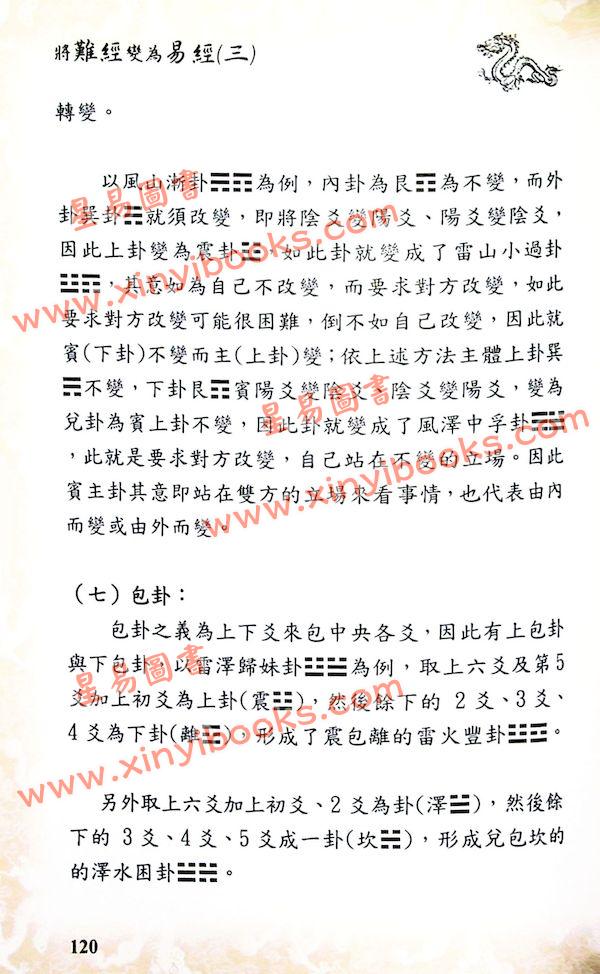 將難經變為易經(三)
轉變。
以風山漸卦☴☶為例，內卦為艮☶為不變，而外
卦巽卦☴就須改變，即將陰爻變陽爻、陽爻變陰爻，
因此上卦變為震卦☳，如此卦就變成了雷山小過卦
☳☶，其意如為自己不改變，而要求對方改變，如此
要求對方改變可能很困難，倒不如自己改變，因此就
賓(下卦)不變而主(上卦)變；依上述方法主體上卦巽
☴不變，下卦艮☶賓陽爻變陰爻、陰爻變陽爻，變為
兌卦為賓上卦不變，因此卦就變成了風澤中孚卦☴☱
，此就是要求對方改變，自己站在不變的立場。因此
賓主卦其意即站在雙方的立場來看事情，也代表由內
而變或由外而變。
（七）包卦：
包卦之義為上下爻來包中央各爻，因此有上包卦
與下包卦，以雷澤歸妹卦☳☱為例，取上六爻及第5
爻加上初爻為上卦(震☳)，然後餘下的 2 爻、3 爻、
4 爻為下卦(離☲)，形成了震包離的雷火豐卦☳☲。
另外取上六爻加上初爻、2 爻為卦(澤☱)，然後餘
下的 3 爻、4 爻、5 爻成一卦(坎☵)，形成兌包坎的
的澤水困卦☱☵。
120
星易圖書
www.xinyibooks.com
星易圖書
www.xinyibooks.com
星易圖書
www.xinyibooks.com